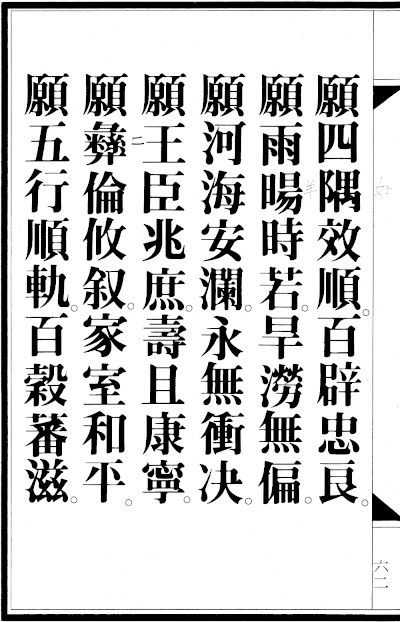 願四隅效順。百辟忠良。
願雨暘時若。旱澇無偏。
願河海安瀾。永無衝決。
願王臣兆庶。壽且康寧。
願彝倫攸叙。家室和平。
願五行順軌。百穀蕃滋。
六二